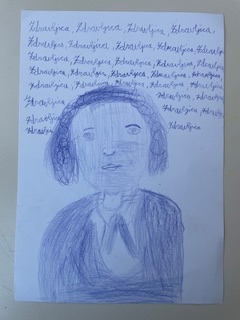 Zdravljica, Zdravljica, Zdravljica, Zdravljica,
Zdravljica, Zdravljica, Zdravljica, Zdravljica, Zdravljica,
Zdravljica, Zdravljica, Zdravljica, Zdravljica, Zdravljica,
Zdravljica, Zdravljica, Zdravljica, Zdravljica, Zdravljica,
Zdravljica, Zdravljica, Zdravljica, Zdravljica, Zdravljica,
Zdravljica, Zdravljica, Zdravljica,
Zdravljica, Zdravljica, Zdravljica
Zdravljica, Zdravljica